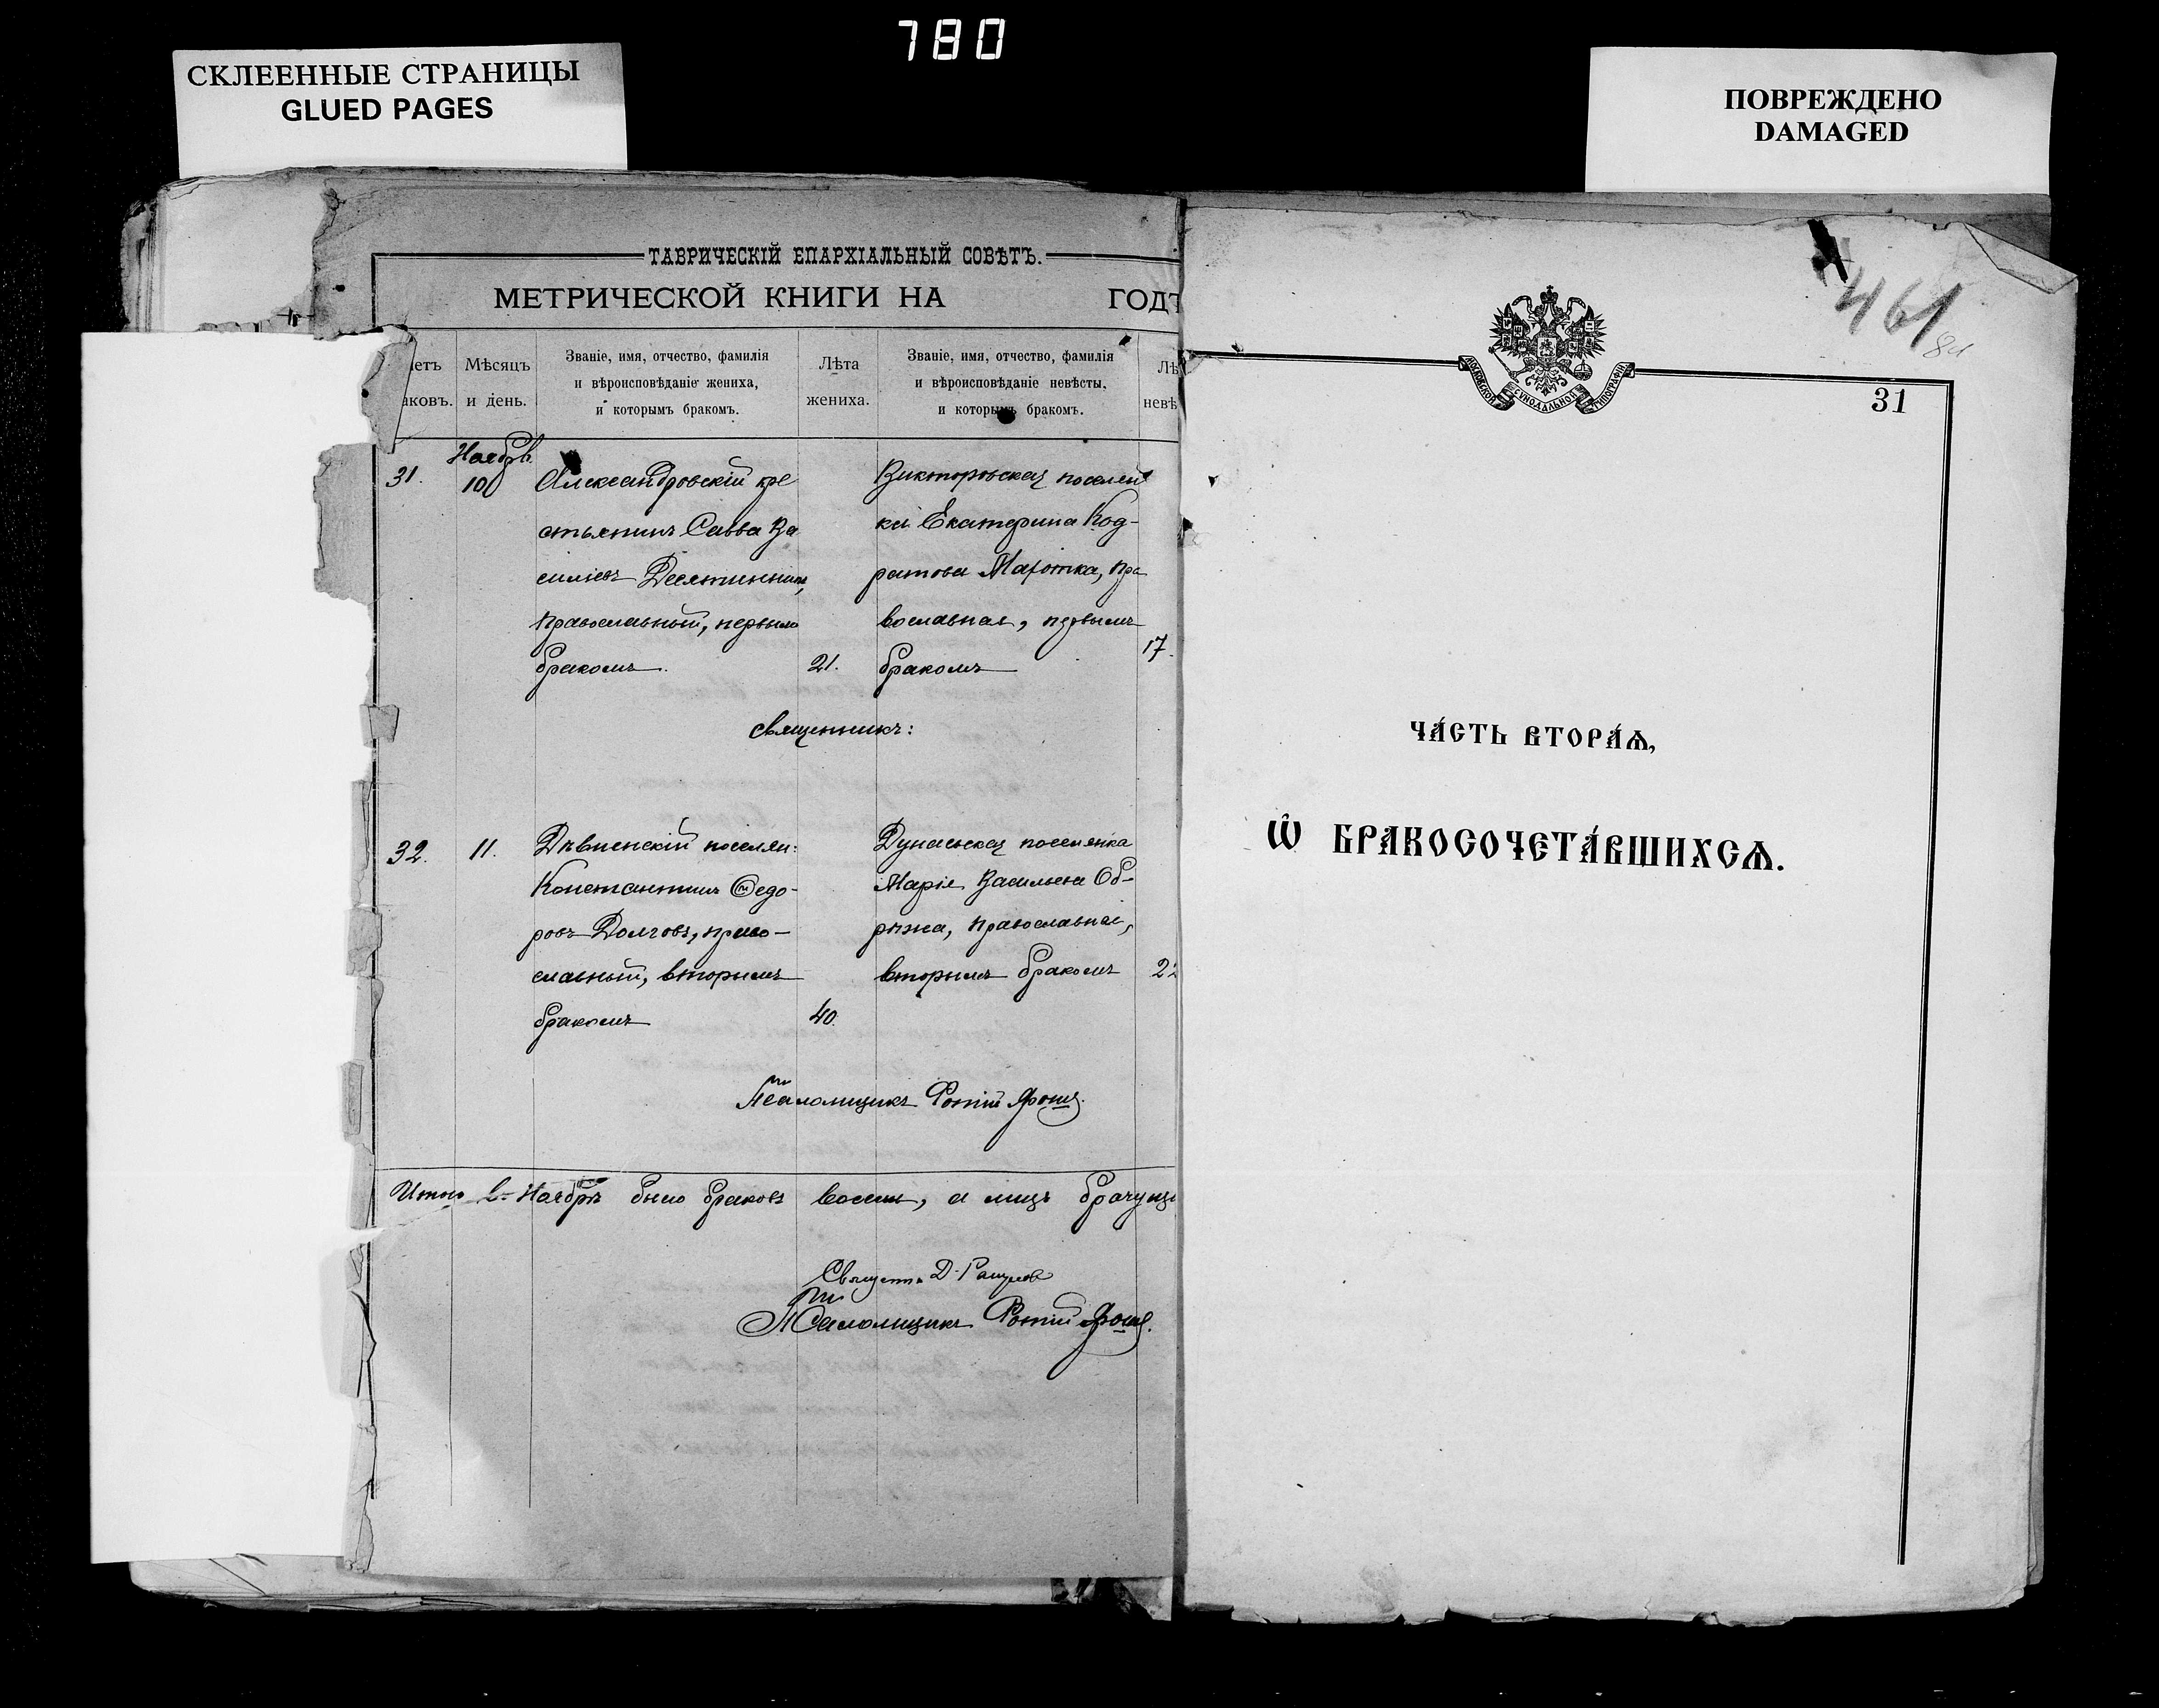 780
СКЛЕЕННЫЕ СТРАНИЦЫ
GLUED PAGES
ПОВРЕЖДЕНО
DAMAGED
ТАВРИЧЕСКІЙ ЕПАРХІАЛЬНЫЙ СОВѢТЪ.
МЕТРИЧЕСКОЙ КНИГИ НА ГОДЪ
Мѣсяцъ
и день.
Званіе, имя, отчество, фамилія
и вѣроисповѣданіе жениха,
и которымъ бракомъ.
Лѣта
жениха.
Званіе, имя, отчество, фамилія
и вѣроисповѣданіе невѣсты,
и которымъ бракомъ.
31.
10
Александровскій кре
стьянинъ Савва Ва
сильевъ
православный, первымъ
бракомъ.
21.
Викторовская поселян
ка Екатерина Код-
ратова пра
вославная, первымъ
бракомъ
17.
Священникъ:
32.
11.
поселян:
Константинъ Ѳедо-
ровъ Долговъ, право-
славный, вторымъ
бракомъ
40.
Дунаевская поселянка
Марія Васильева Об-
православная,
вторымъ бракомъ
Псаломщикъ Фотій
Итого въ Ноябрѣ было браковъ восемь, а лицъ
Священ. Д.
Псаломщикъ Фотій
461
31
МОСКОВСКОЙ СѴНОДАЛЬНОЙ ТИПОГРАФІИ
ЧА́СТЬ ВТОРА́Ѧ,
Ѡ҆ БРАКОСОЧЕТА́ВШИХСѦ.